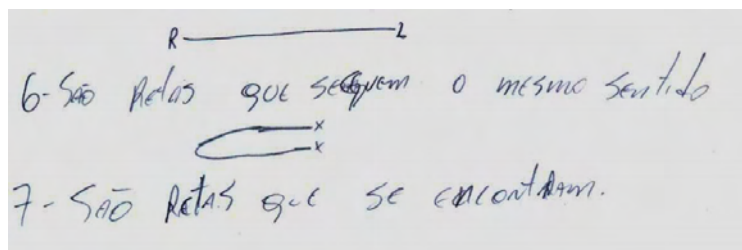 R L
6- São Retas que seguem o mesmo sentido
x
x
7- São Retas que se encontram.